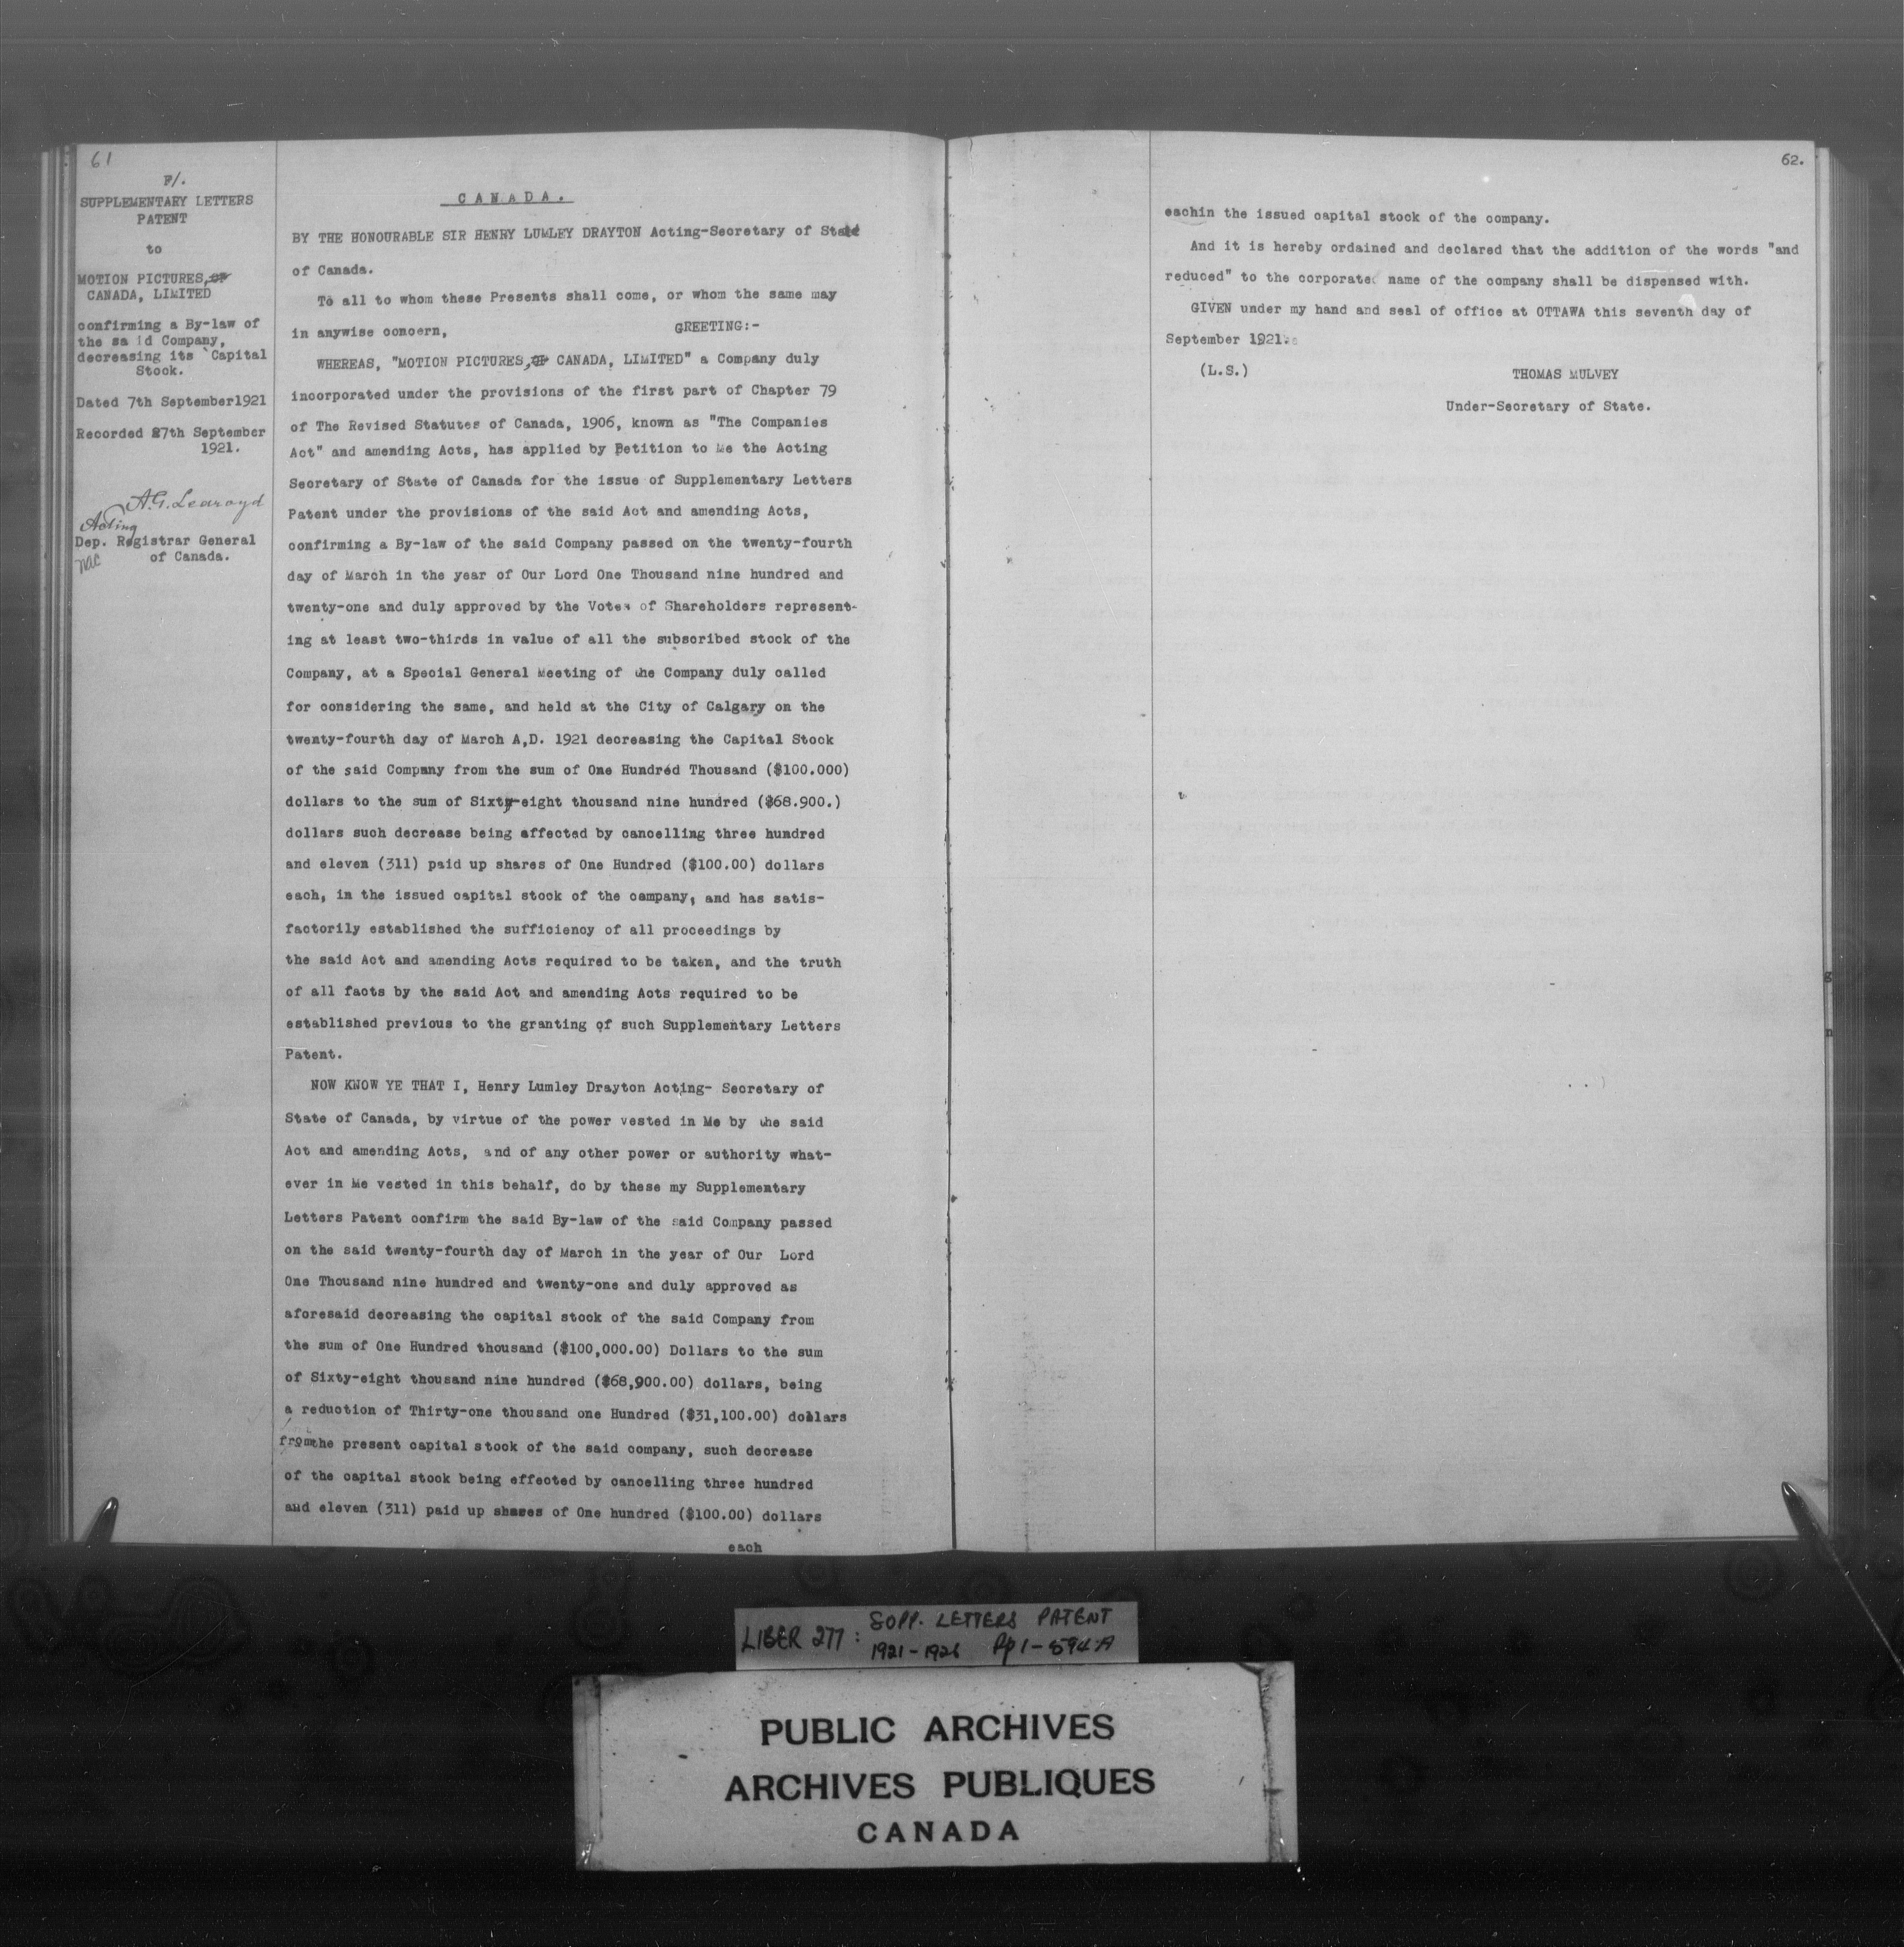 61
F/.
SUPPLEMENTARY LETTERS
PATENT
to
MOTION PICTURES, OF
CANADA, LIMITED
confirming a By-law of
the sa id Company,
decreasing its Capital
Stock.
Dated 7th September1921
Recorded 27th September
1921.
A.G. Learoyd
Acting
Dep. Registrar General
of Canada.
CANADA.
BY THE HONOURABLE SIR HENRY LUMLEY DRAYTON Acting-Secretary of State
of Canada.
To all to whom these Presents shall come, or whom the same may
in anywise concern, GREETING:-
WHEREAS, "MOTION PICTURES, OF CANADA, LIMITED" a Company duly
incorporated under the provisions of the first part of Chapter 79
of The Revised Statutes of Canada, 1906, known as "The Companies
Act" and amending Acts, has applied by Petition to Me the Acting
Secretary of State of Canada for the issue of Supplementary Letters
Patent under the provisions of the said Act and amending Acts,
confirming a By-law of the said Company passed on the twenty-fourth
day of March in the year of Our Lord One Thousand nine hundred and
twenty-one and duly approved by the Votes of Shareholders represent-
ing at least two-thirds in value of all the subscribed stock of the
Company, at a Special General Meeting of the Company duly called
for considering the same, and held at the City of Calgary on the
twenty-fourth day of March A,D. 1921 decreasing the Capital Stock
of the said Company from the sum of One Hundred Thousand ($100.000)
dollars to the sum of Sixty-eight thousand nine hundred ($68.900.)
dollars such decrease being affected by cancelling three hundred
and eleven (311) paid up shares of One Hundred ($100.00) dollars
each, in the issued capital stock of the company, and has satis-
factorily established the sufficiency of all proceedings by
the said Act and amending Acts required to be taken, and the truth
of all facts by the said Act and amending Acts required to be
established previous to the granting of such Supplementary Letters
Patent.
NOW KNOW YE THAT I, Henry Lumley Drayton Acting- Secretary of
State of Canada, by virtue of the power vested in Me by the said
Act and amending Acts, and of any other power or authority what-
ever in Me vested in this behalf, do by these my Supplementary
Letters Patent confirm the said By-law of the said Company passed
on the said twenty-fourth day of March in the year of Our Lord
One Thousand nine hundred and twenty-one and duly approved as
aforesaid decreasing the capital stock of the said Company from
the sum of One Hundred thousand ($100,000.00) Dollars to the sum
of Sixty-eight thousand nine hundred ($68,900.00) dollars, being
a reduction of Thirty-one thousand one Hundred ($31,100.00) dollars
from the present capital stock of the said company, such decrease
of the capital stock being effected by cancelling three hundred
and eleven (311) paid up shares of One hundred ($100.00) dollars
each
62.
eachin the issued capital stock of the company.
And it is hereby ordained and declared that the addition of the words "and
reduced" to the corporate name of the company shall be dispensed with.
GIVEN under my hand and seal of office at OTTAWA this seventh day of
September 1921.
(L.S.) THOMAS MULVEY
Under-Secretary of State.
LIBER 277: SUPP. LETTERS PATENT
1921-1926 Pp 1-594-A
PUBLIC ARCHIVES
ARCHIVES PUBLIQUES
CANADA